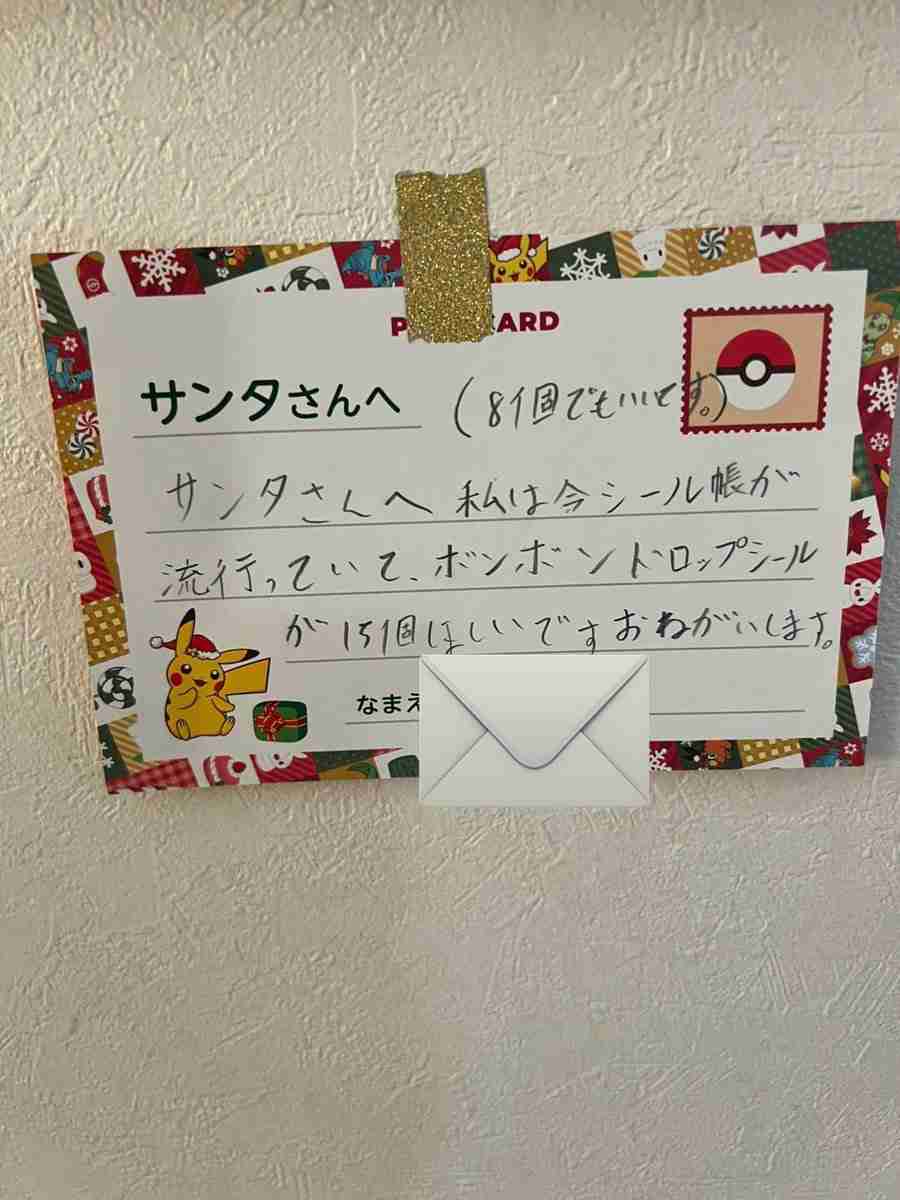 POSTCARD
サンタさんへ (8個でもいいです。)
サンタさんへ 私は今シール帳が
流行っていて、ボンボンドロップシール
が15個ほしいですおねがいします。
なまえ